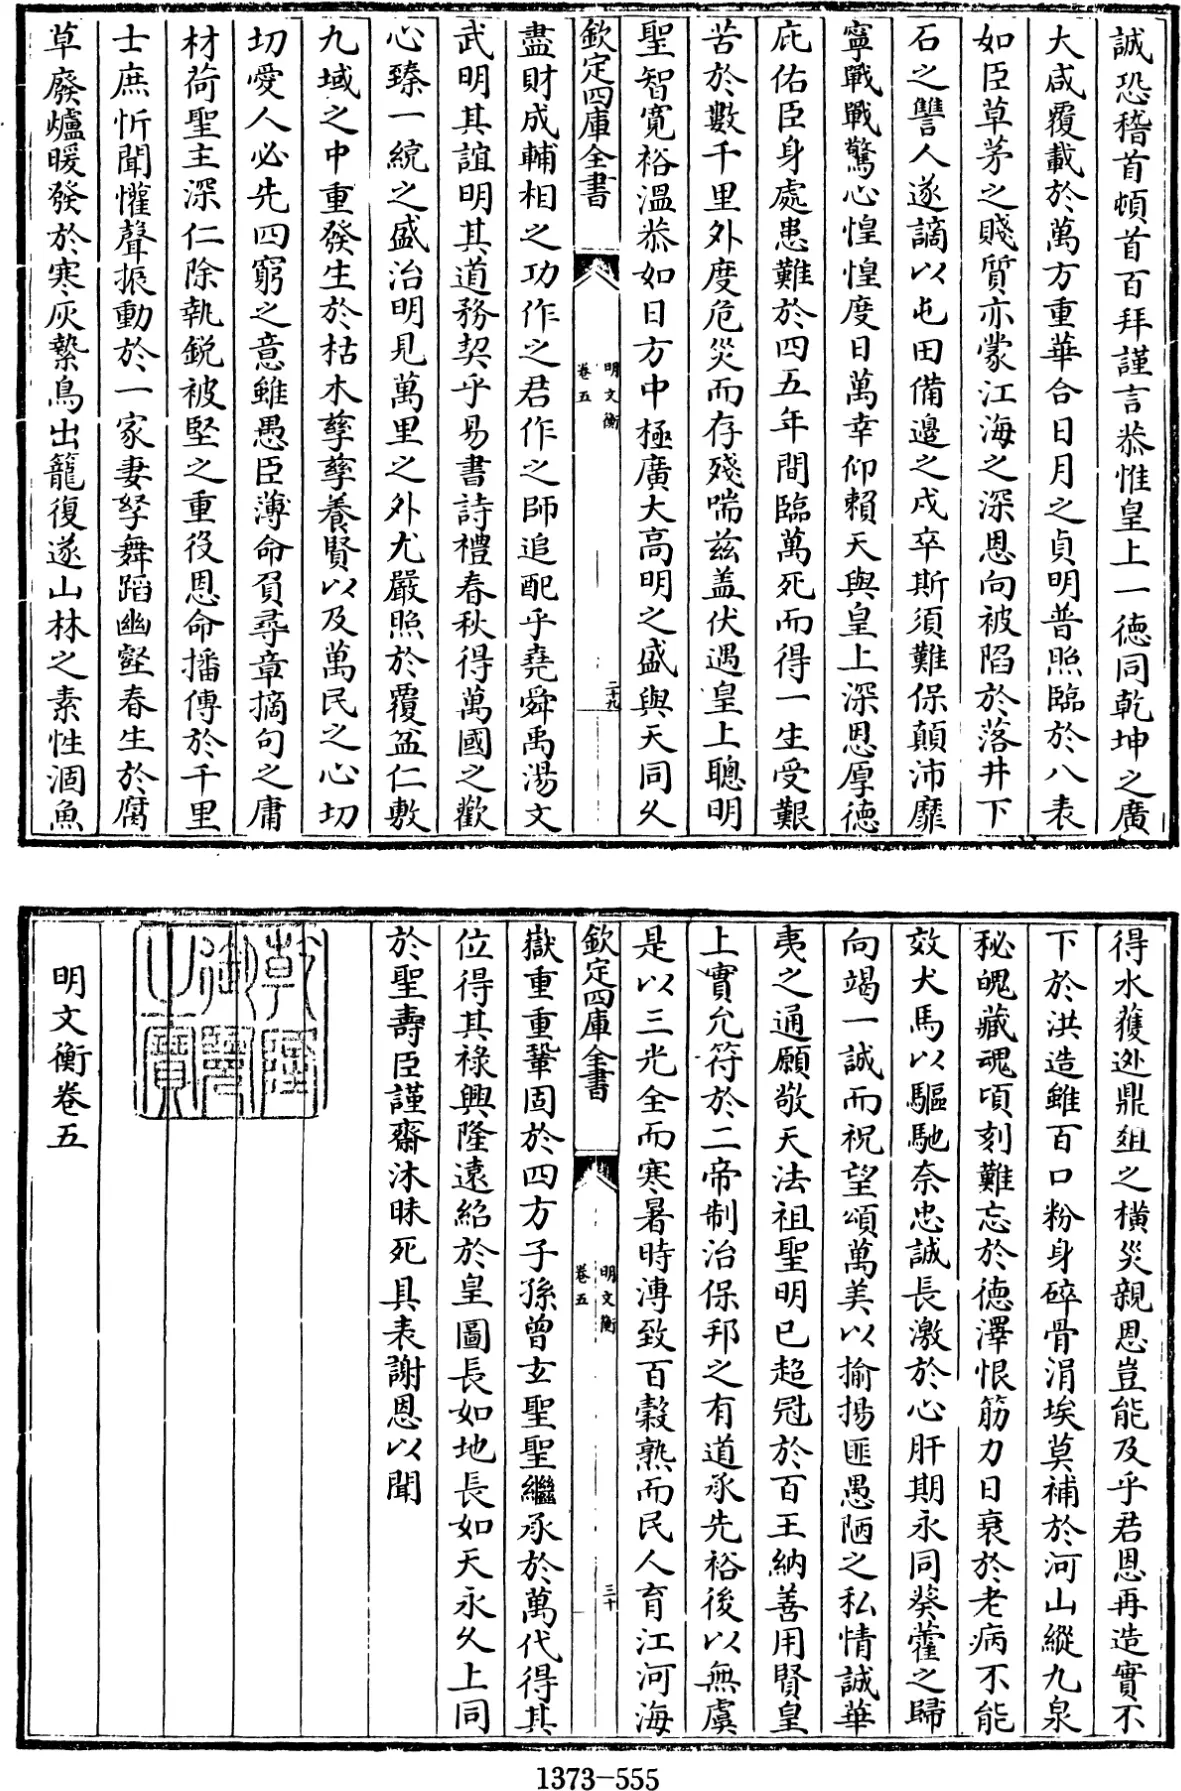 誠恐稽首頓首百拜謹言恭惟皇上一徳同乾坤之廣
大咸覆載於萬方重華合日月之貞明普照臨於八表
如臣草茅之賤質亦蒙江海之深恩向被陷於落井下
石之讐人遂謫以屯田備邊之戍卒斯須難保顛沛靡
寧戰戰驚心惶惶度日萬幸仰賴天與皇上深恩厚徳
庇佑臣身處患難於四五年間臨萬死而得一生受艱
苦於數千里外度危災而存殘喘兹盖伏遇皇上聰明
聖智寛裕溫恭如日方中極廣大高明之盛與天同久
欽定四庫全書
明文衡
卷五
二十九
盡財成輔相之功作之君作之師追配乎堯舜禹湯文
武明其誼明其道務契乎易書詩禮春秋得萬國之歡
心臻一統之盛治明見萬里之外尤嚴照於覆盆仁敷
九域之中重發生於枯木孳孳養賢以及萬民之心切
切愛人必先四窮之意雖愚臣薄命負尋章摘句之庸
材荷聖主深仁除執銳被堅之重役恩命播傳於千里
士庶忻聞懽聲振動於一家妻孥舞蹈幽壑春生於腐
草廢爐暖發於寒灰縶鳥出籠復遂山林之素性涸魚
得水獲逊鼎俎之橫災親恩豈能及乎君恩再造實不
下於洪造雖百口粉身碎骨涓埃莫補於河山縱九泉
秘魄藏魂頃刻難忘於徳澤恨筋力日衰於老病不能
效犬馬以驅馳奈忠誠長激於心肝期永同葵藿之歸
向竭一誠而祝望頌萬美以揄揚匪愚陋之私情誠華
夷之通願敬天法祖聖明已超冠於百王納善用賢皇
上實允符於二帝制治保邦之有道承先裕後以無虞
是以三光全而寒暑時溥致百穀熟而民人育江河海
欽定四庫全書
明文衡
卷五
三十
嶽重重鞏固於四方子孫曾玄聖聖繼承於萬代得其
位得其祿興隆遠紹於皇圖長如地長如天永久上同
於聖壽臣謹齋沐昧死具表謝恩以聞
乾隆御覽之寶
明文衡卷五
1373-555